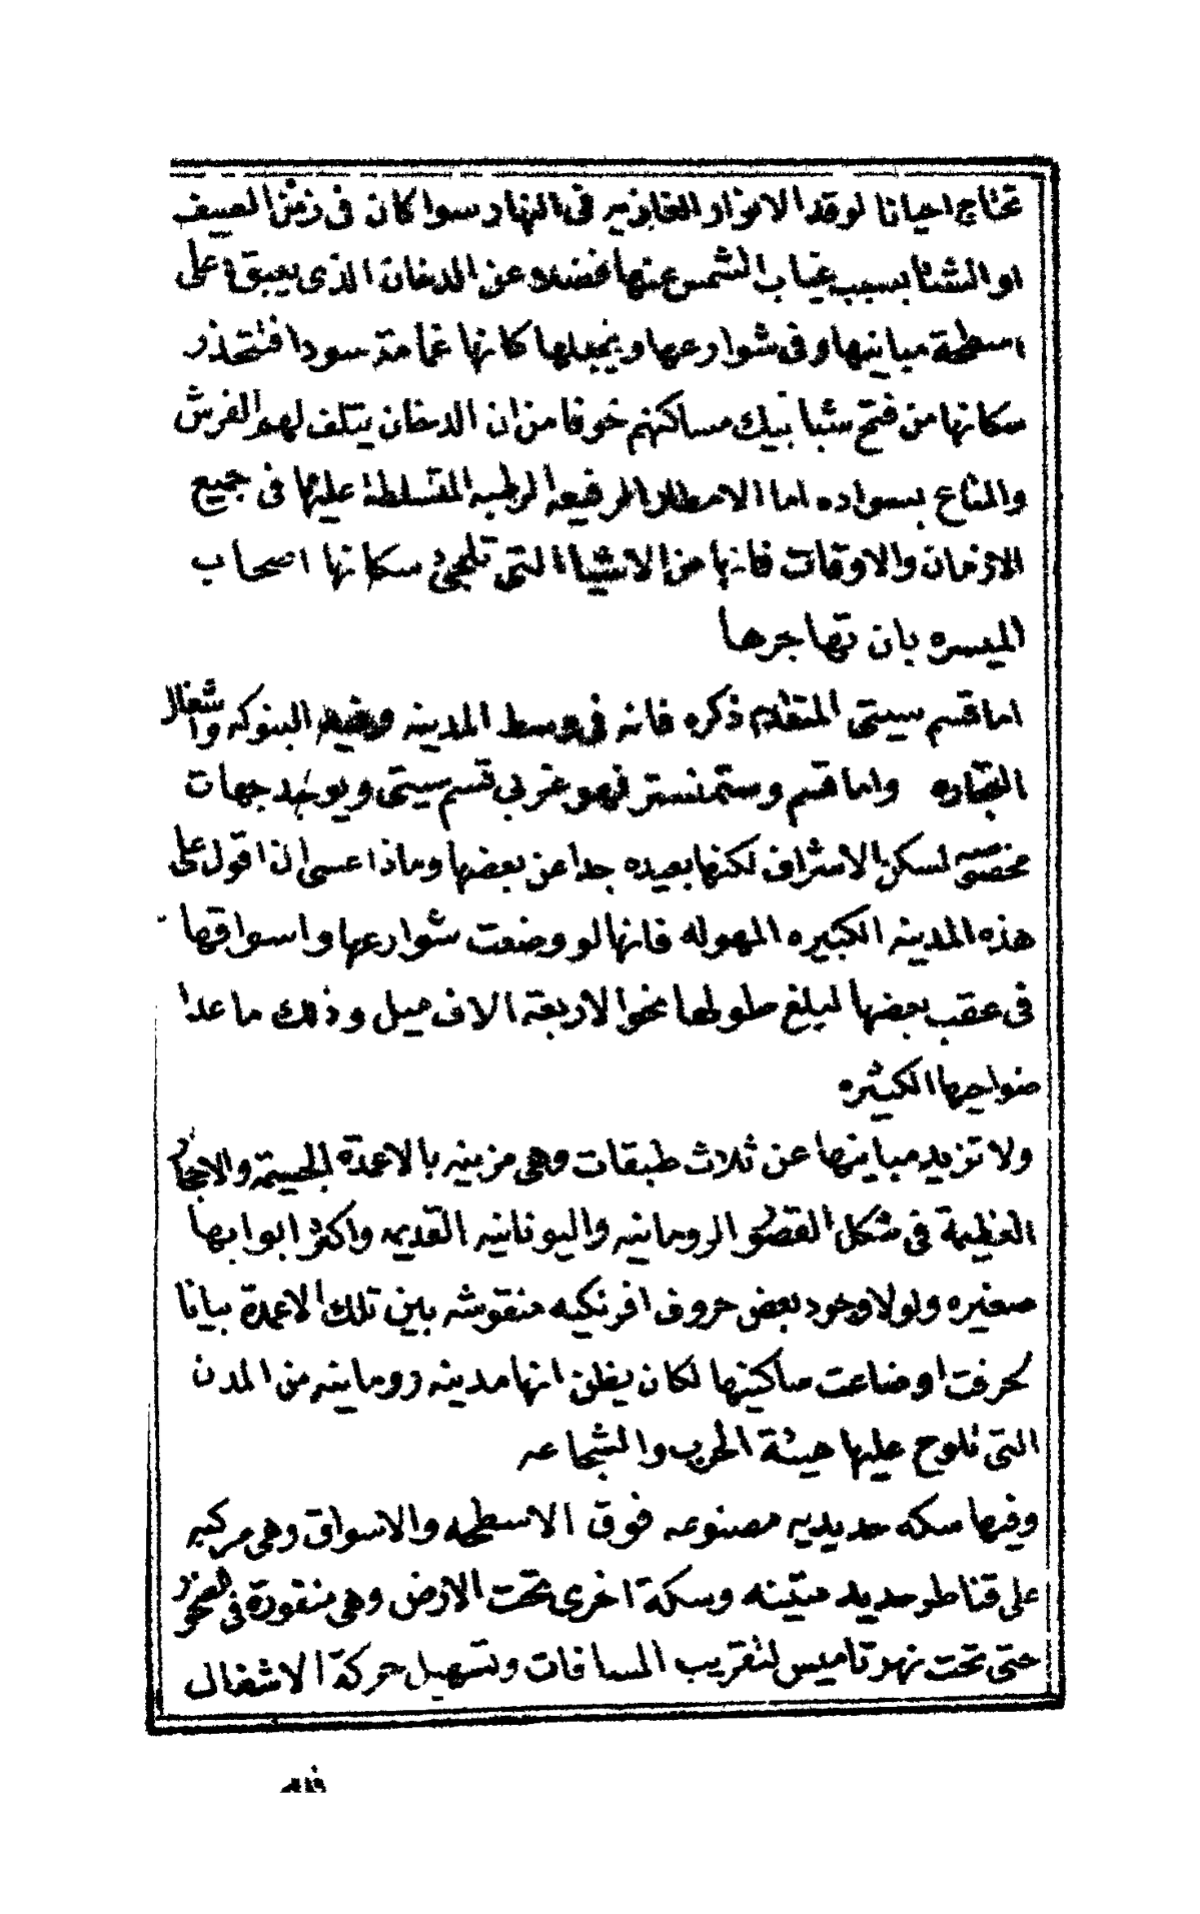 تحتاج احيانا لوقد الانوار الغازيه فى النهار سوا كان فى زمن الصيف
او الشتا بسبب غياب الشمس عنها فضلا عن الدخان الذى يبقا على
اسطحة مبانيها وفى شوارعها ويجعلها كانها غمامة سودا فتحذر
سكانها من فتح شبابيك مساكنهم خوفا من ان الدخان يتلف لهم الفرش
والمتاع بسواده اما الامطار الرفيعه الرطبه المتسلطة عليها فى جميع
الازمان والاوقات فانها من الاشيا التى تلجئ سكانها اصحاب
الميسره بان تهاجرها
اما قسم سيتى المتقدم ذكره فانه فى وسط المدينه وفيه البنوكه واشغال
التجاره واما قسم وستمنستر فهو غربى قسم سيتى ويوجد جهات
مخصصى لسكن الاشراف لكنها بعيده جدا عن بعضها وماذا عسى ان اقول على
هذه المدينه الكبيره المهوله فانها لو وضعت شوارعها واسواقها
فى عقب بعضها لبلغ طولها نحوا لاربعة الاف ميل وذلك ما عدا
ضواحيها الكثيره
ولا تزيد مبانيها عن ثلاث طبقات وهى مزينه بالاعمدة الجسيمة والاحجار
العظيمة فى شكل القصور الرومانيه واليونانيه القديمه واكثر ابوابها
صغيره ولولا وجود بعض حروف افرنكيه منقوشه بين تلك الاعمدة بيانا
لحرفت او ضاعت ساكنيها لكان يظن انها مدينه رومانيه من المدن
التى تلوح عليها هيئة الحرب والشجاعه
وفيها سكه حديديه مصنوعه فوق الاسطحه والاسواق وهى مركبه
على قناطر حديد متينه وسكة اخرى تحت الارض وهى منقورة فى الصخور
حتى تحت نهر تاميس لتقريب المسافات وتسهيل حركة الاشغال